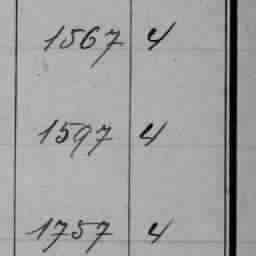 1567 4
1597 4
1757 4